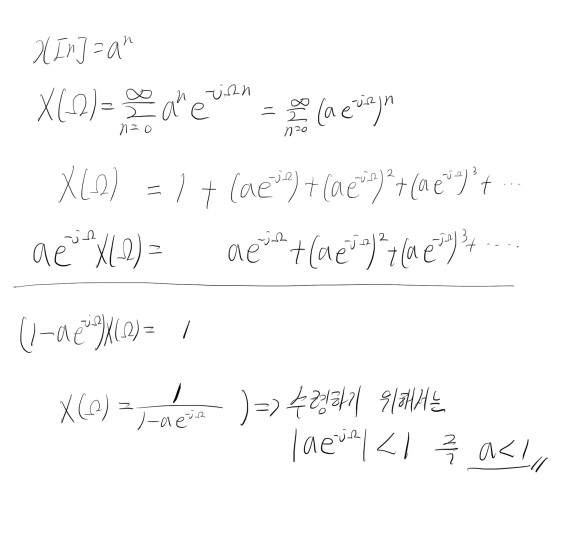 x[n] = aⁿ
X(Ω) = ∑_{n=0}^{∞} aⁿ e^{-jΩn} = ∑_{n=0}^{∞} (ae^{-jΩ})ⁿ
X(Ω) = 1 + (ae^{-jΩ}) + (ae^{-jΩ})² + (ae^{-jΩ})³ + ...
ae^{-jΩ}X(Ω) = ae^{-jΩ} + (ae^{-jΩ})² + (ae^{-jΩ})³ + ....
(1-ae^{-jΩ})X(Ω) = 1
X(Ω) = 1/(1-ae^{-jΩ}) ) => 수렴하기 위해서는
|ae^{-jΩ}| < 1 즉 a<1 //